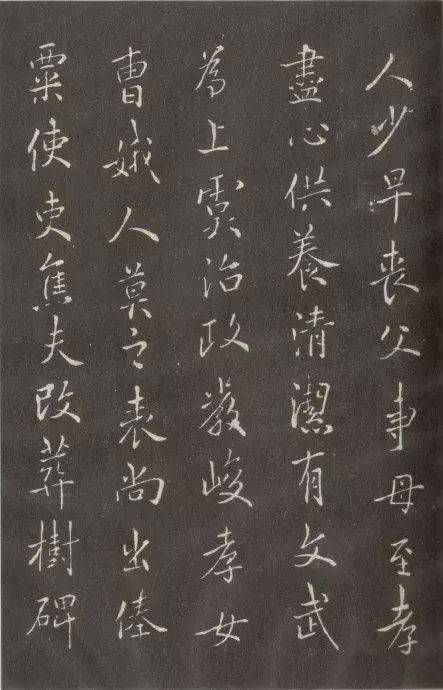 人少早丧父事母至孝
盡心供養清潔有文武
為上虞治政嚴峻孝女
曹娥人莫之表尚出俸
粟使吏焦夫改葬樹碑